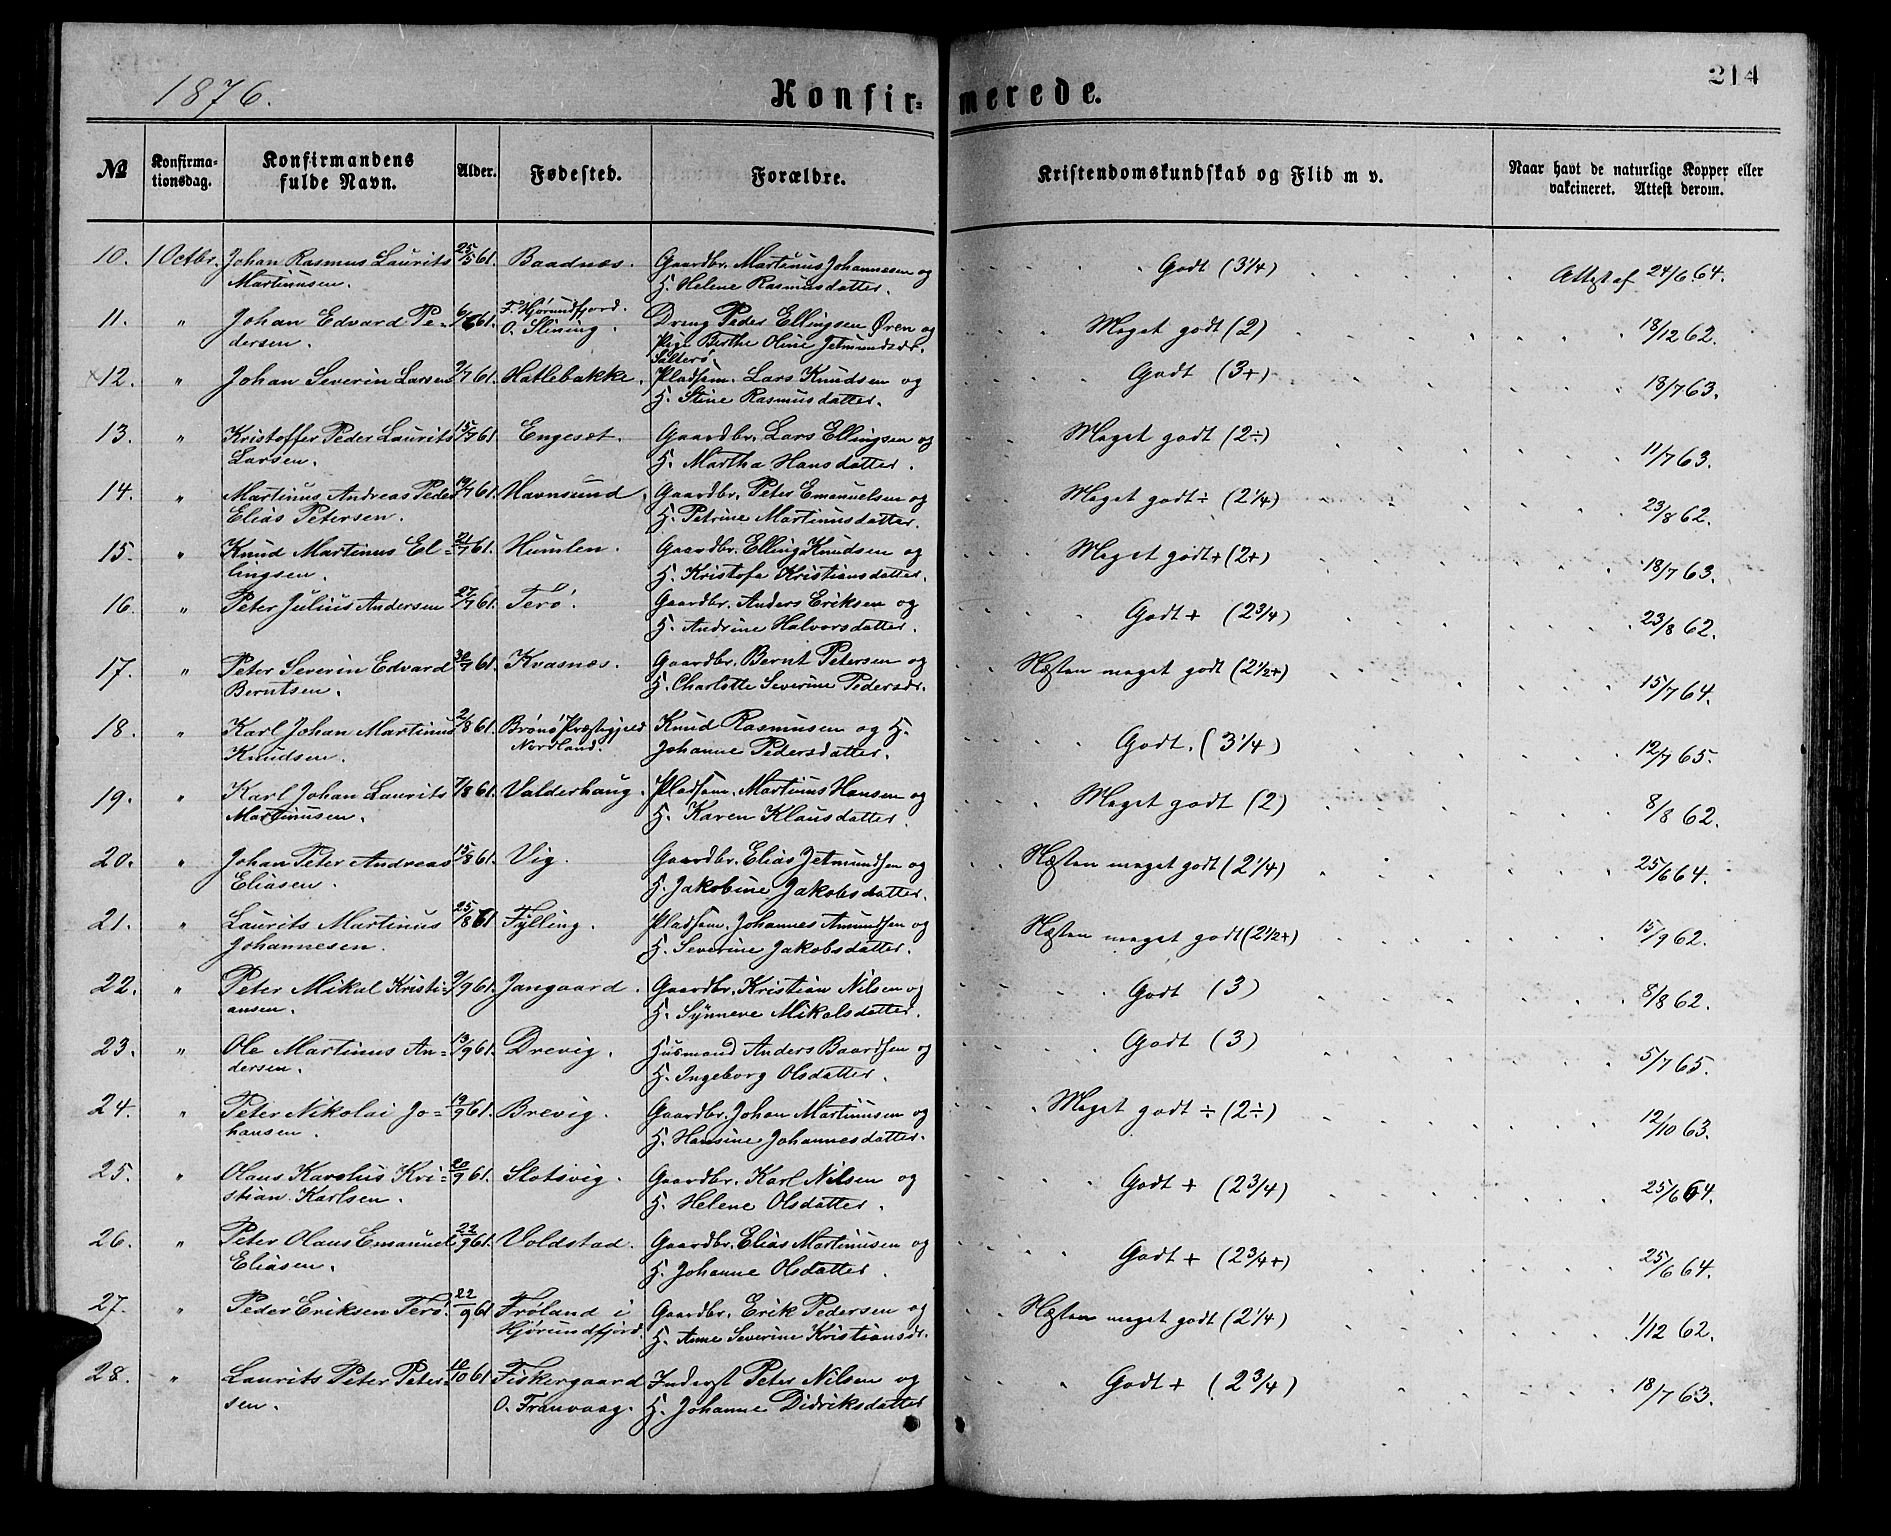 1876.
Konfir-
merede.
214
№
Konfirma-
tionsdag.
Konfirmandens
fulde Navn.
Alder.
Fødested.
Forældre.
Kristendomskundskab og Flid m v.
Naar havt de naturlige Kopper eller
vakcineret. Attest derom.
10. 1 Octbr. Johan Rasmus Laurits 25/5 61. Baadnæs. Gaardbr. Martinus Johannesen og Godt (3 1/4) Attest af 24/6 64.
Martinusen. H. Helene Rasmusdatter.
11. " Johan Edvard Pe- 6/6 61. F. Hjørundfjord. Dreng Peder Ellingsen Øren og Meget godt (2) 18/12 62.
dersen. O. Slining. Pige Berthe Oline Jetmundsdr.
Salterø.
12. " Johan Severin Larsen 9/7 61. Hatlebakke. Pladsm. Lars Knudsen og Godt (3+) 18/7 63.
H. Stine Rasmusdatter.
13. " Kristoffer Peder Laurits 15/7 61. Engeset. Gaardbr. Lars Ellingsen og Meget godt (2÷) 11/7 63.
Larsen. H. Martha Hansdatter.
14. " Martinus Andreas Peder 19/7 61. Havnsund. Gaardbr. Peter Emanuelsen og Meget godt÷ (2 1/4) 23/8 62.
Elias Petersen. H. Petrine Martinusdatter.
15. " Knud Martinus El- 21/7 61. Humlen. Gaardbr. Elling Knudsen og Meget godt+ (2+) 18/7 63.
lingsen. H. Kristofa Kristiansdatter.
16. " Peter Julius Andersen 27/7 61. Terø. Gaardbr. Anders Eriksen og Godt + (2 3/4) 23/8 62.
H. Andrine Halvorsdatter.
17. " Peter Severin Edvard 30/7 61. Kvasnæs. Gaardbr. Bernt Petersen og Næsten meget godt (2 1/2+) 15/7 64.
Berntsen. H. Charlotte Severine Pedersdr.
18. " Karl Johan Martinus 2/8 61. Brønø Præstegjeld Knud Rasmusen og H. Godt. (3 1/4) 12/7 65.
Knudsen. Nordland. Johanne Pedersdatter.
19. " Karl Johan Laurits 7/8 61. Valderhaug. Pladsm. Martinus Hansen og Meget godt (2) 8/8 62.
Martinusen. H. Karen Klausdatter.
20. " Johan Peter Andreas 15/8 61. Vig. Gaardbr. Elias Jetmundsen og Næsten meget godt (2 1/4) 25/6 64.
Eliasen. H. Jakobine Jakobsdatter.
21. " Laurits Martinus 25/8 61 Fylling. Pladsm. Johannes Amundsen og Næsten meget godt (2 1/2+) 15/9 62.
Johannesen. H. Severine Jakobsdatter.
22. " Peter Mikal Kristi- 9/9 61. Jangaard. Gaardbr. Kristian Nilsen og Godt (3) 8/8 62.
ansen. H. Synneve Mikalsdatter.
23. " Ole Martinus An- 13/9 61. Drevig. Husmand Anders Baardsen og Godt (3) 5/7 65.
dersen. H. Ingeborg Olsdatter.
24. " Peter Nikolai Jo- 19/9 61. Brevig. Gaardbr. Johan Martinusen og Meget godt ÷ (2÷) 12/10 63.
hansen. H. Hansine Johannesdatter.
25. " Olaus Karolus Kri- 20/9 61. Slotsvig. Gaardbr. Karl Nilsen og Godt + (2 3/4) 25/6 64.
stian Karlsen. H. Helene Olsdatter.
26. " Peter Olaus Emanuel 22/9 61. Voldstad. Gaardbr. Elias Martinusen og Godt + (2 3/4+) 25/6 64.
Eliasen. H. Johanne Olsdatter.
27. " Peder Eriksen Terø. 22/9 61 Frøland i Gaardbr. Erik Pedersen og Næsten meget godt (2 1/4) 1/12 62.
Hjørundfjord. H. Anne Severine Kristiansdr.
28. " Laurits Peter Peter- 10/10 61 Fiskergaard Inderst Peter Nilsen og Godt + (2 3/4) 18/7 63.
sen. O. Franvaag. H. Johanne Didriksdatter